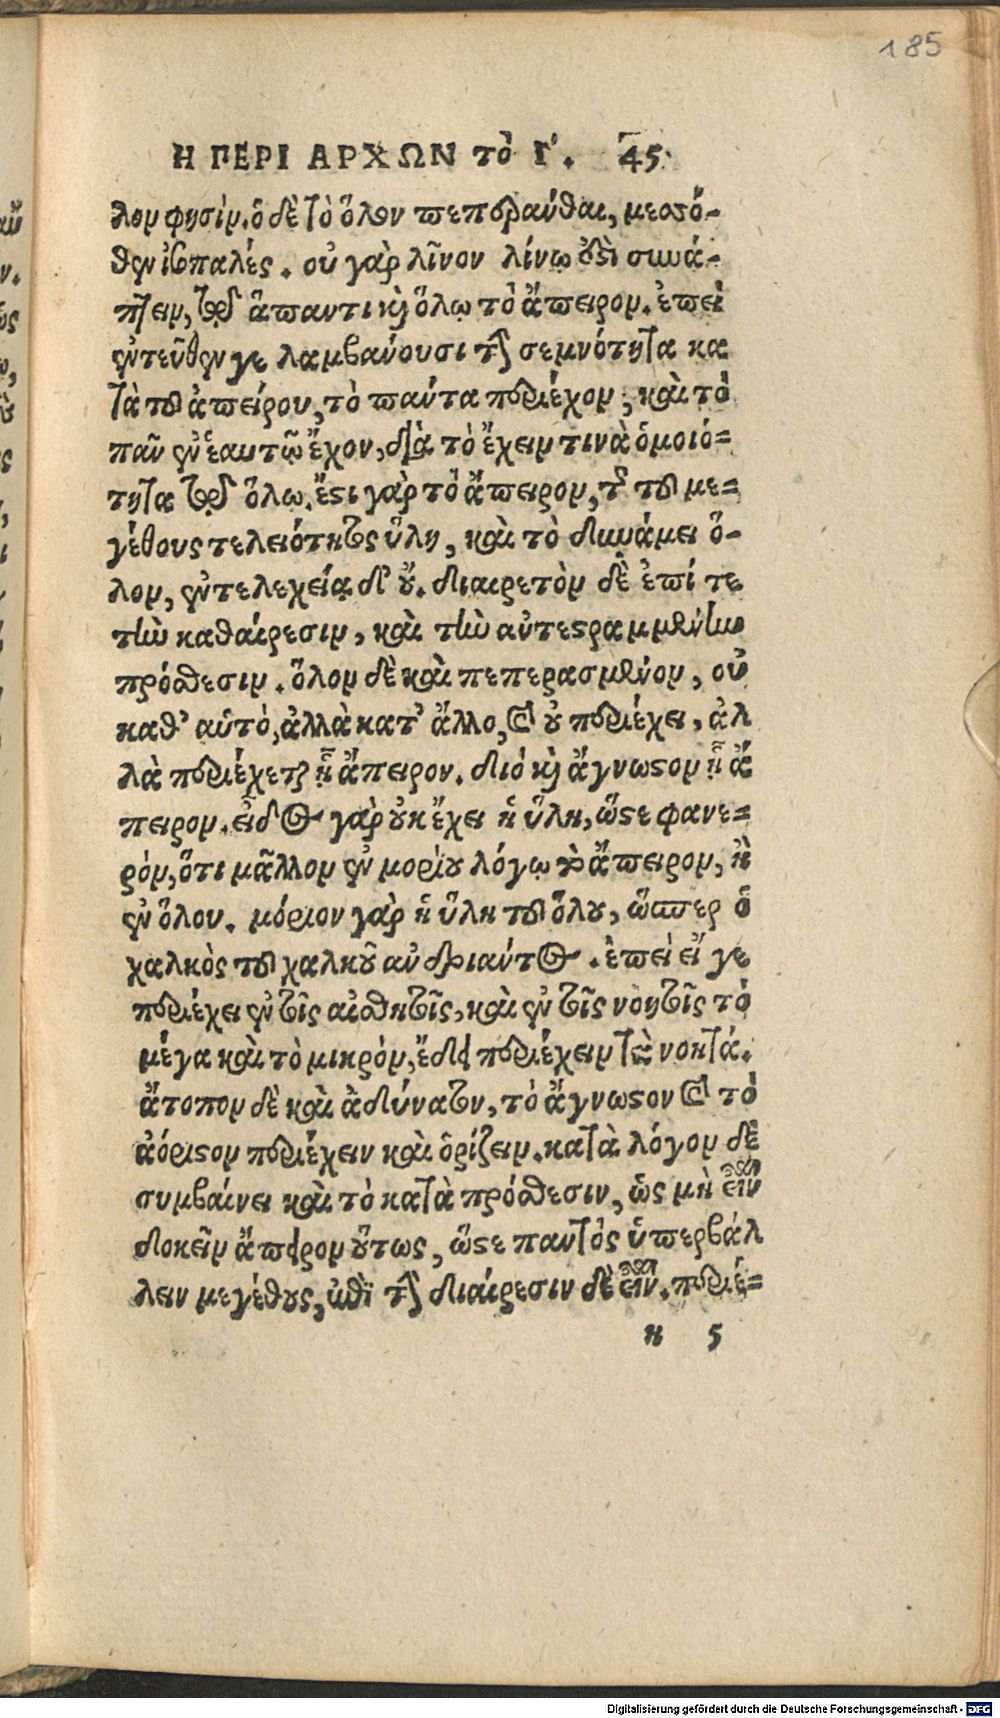 185
Η ΠΕΡΙ ΑΡΧΩΝ τὸ Γ. 45
λον φησὶν. ὁ δὲ τὸ ὅλον πεπεράνθαι, μεσσό-
θεν ἰσοπαλές. οὐ γὰρ λῖνον λίνῳ ὅδὶ συνά-
πτειν, τῷ ἅπαντι κὶ ὅλῳ τὸ ἄπειρον. ἐπεὶ
ἐντεῦθεν γε λαμβάνουσι τὴν σεμνότητα κα
τὰ τοῦ ἀπείρου, τὸ πάντα περιέχον, καὶ τὸ
πᾶν ἐν ἑαυτῷ ἔχον, διὰ τὸ ἔχειν τινὰ ὁμοιό=
τητα τῷ ὅλῳ. ἔστι γὰρ τὸ ἄπειρον, τῆς τοῦ με=
γέθους τελειότητος ὕλη, καὶ τὸ δυνάμει ὅ-
λον, ἐντελεχείᾳ δ' οὔ. διαιρετὸν δὲ ἐπί τε
τὴν καθαίρεσιν, καὶ τὴν ἀντεστραμμένην
πρόσθεσιν. ὅλον δὲ καὶ πεπερασμένον, οὐ
καθ' αὑτὸ, ἀλλὰ κατ' ἄλλο, καὶ οὐ περιέχει, ἀλ
λὰ περιέχεται ᾗ ἄπειρον. διὸ κὶ ἄγνωστον ᾗ ἄ
πειρον. εἶδος γὰρ οὐκ ἔχει ἡ ὕλη, ὥστε φανε=
ρὸν, ὅτι μᾶλλον ἐν μορίου λόγῳ τὸ ἄπειρον, ἢ
ἐν ὅλου. μόριον γὰρ ἡ ὕλη τοῦ ὅλου, ὥσπερ ὁ
χαλκὸς τοῦ χαλκοῦ ἀνδριάντος. ἐπεὶ εἴ γε
περιέχει ἐν τοῖς αἰσθητοῖς, καὶ ἐν τοῖς νοητοῖς τὸ
μέγα καὶ τὸ μικρὸν, ἔδει περιέχειν τὰ νοητά.
ἄτοπον δὲ καὶ ἀδύνατον, τὸ ἄγνωστον καὶ τὸ
ἀόριστον περιέχειν καὶ ὁρίζειν. κατὰ λόγον δὲ
συμβαίνει καὶ τὸ κατὰ πρόσθεσιν, ὡς μὴ εἶναι
δοκεῖν ἄπειρον οὕτως, ὥστε παντὸς ὑπερβάλ
λειν μεγέθους, ἐπὶ τὴν διαίρεσιν δὲ εἶναι. περιέ=
η 5
Digitalisierung gefördert durch die Deutsche Forschungsgemeinschaft - DFG